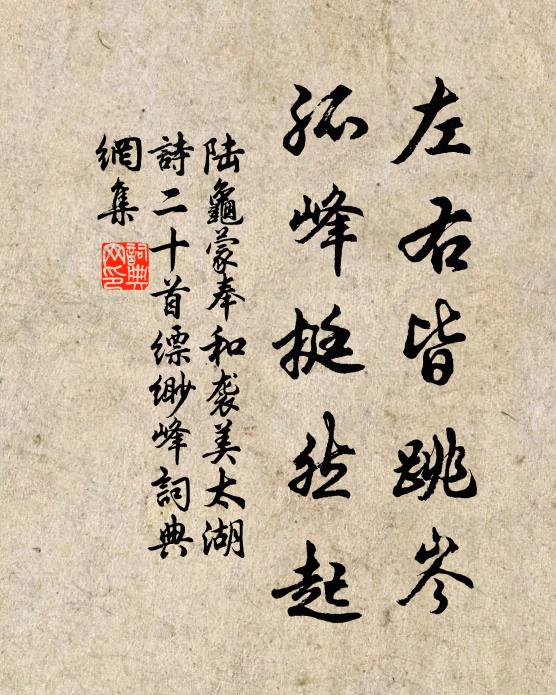 左右皆跳岑
孤峰挺然起
陆龜蒙奉和袭美太湖
詩二十首缥缈峰詞典
網集
詞典
网印